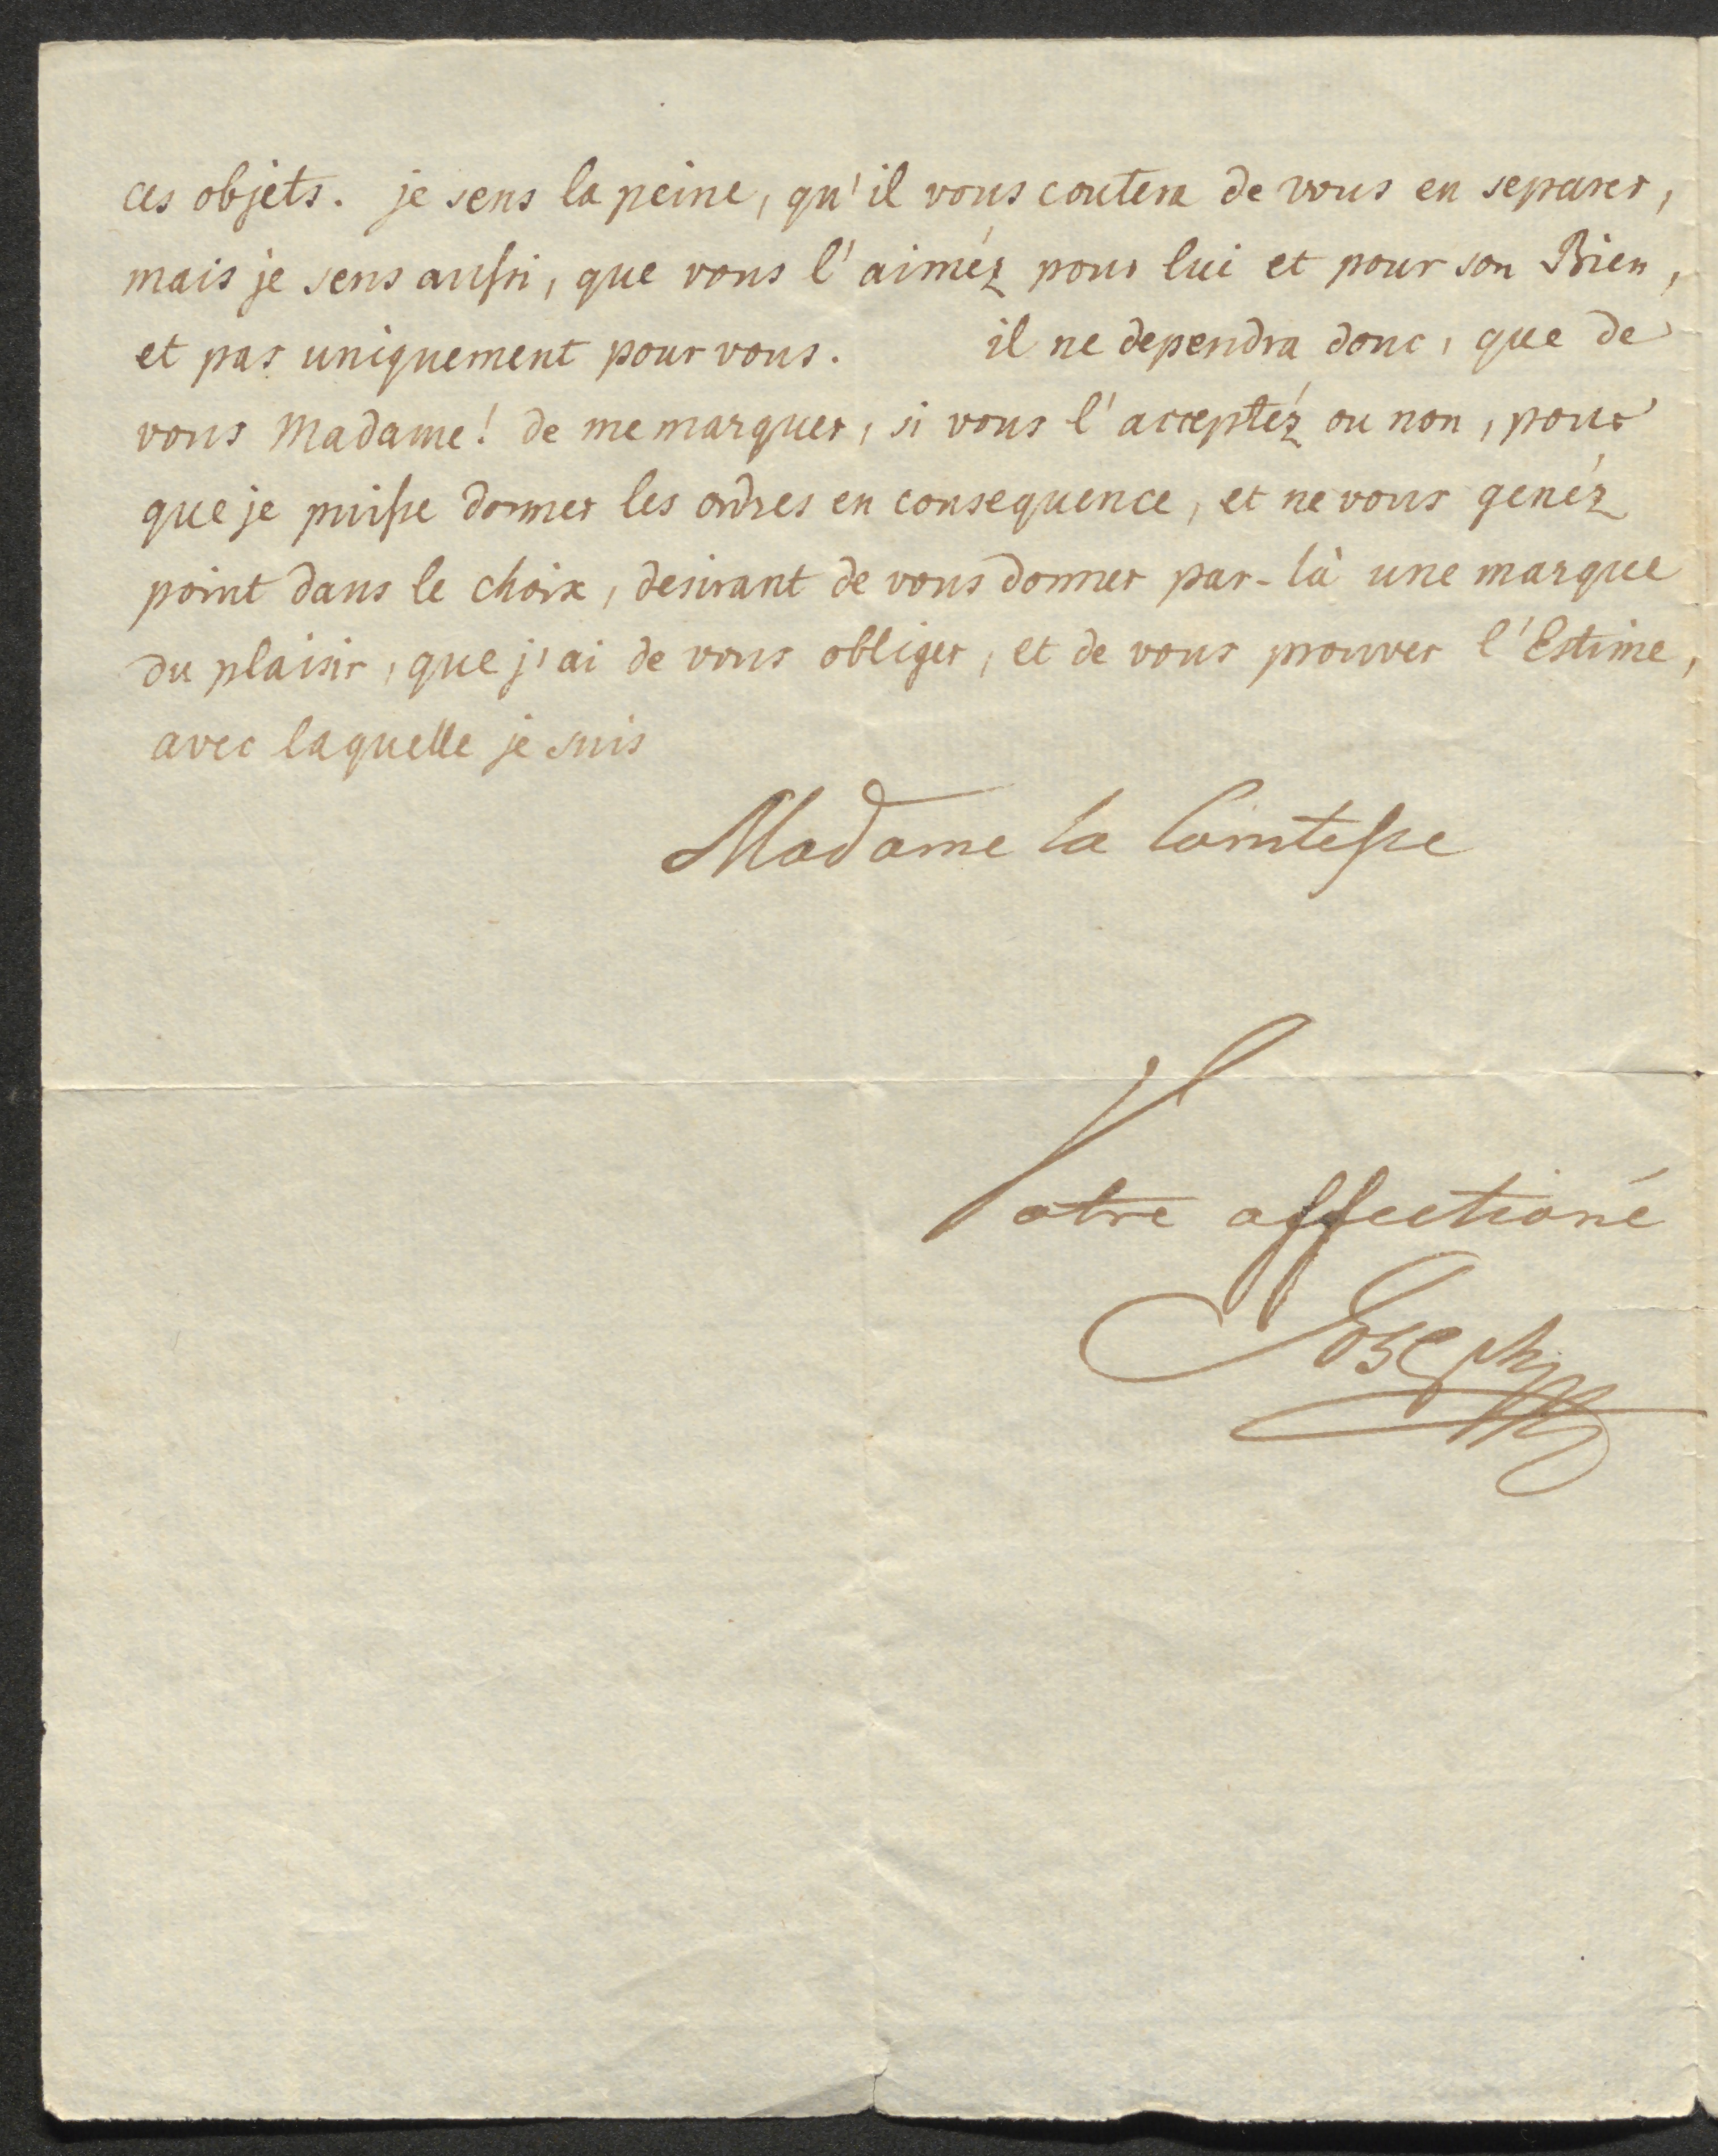 ces objets. je sens la peine, qu'il vous coutera de vous en separer,
mais je sens aussi, que vous l'aiméz pour lui et pour son Bien,
et pas uniquement pour vous. il ne dependra donc, que de
vous Madame! de me marquer, si vous l'acceptéz ou non, pour
que je puisse donner les ordres en consequence, et ne vous genéz
point dans le choix, desirant de vous donner par-là une marque
du plaisir, que j'ai de vous obliger, et de vous prouver l'Estime,
avec laquelle je suis
Madame la Comtesse
Votre affectioné
Joseph